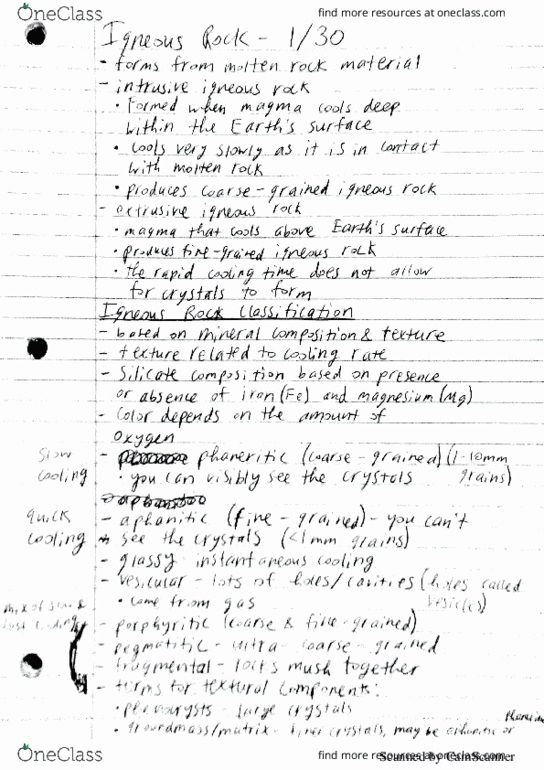 OneClass
find more resources at oneclass.com
Igneous Rock - 1/30
- forms from molten rock material
- intrusive igneous rock
• Formed when magma cools deep
within the Earth's surface
• cools very slowly as it is in contact
with molten rock
• produces coarse-grained igneous rock
- extrusive igneous rock
• magma that cools above Earth's surface
• produces fine-grained igneous rock
• the rapid cooling time does not allow
for crystals to form
Igneous Rock Classification
- based on mineral composition & texture
- texture related to cooling rate
- Silicate composition based on presence
or absence of iron (Fe) and magnesium (Mg)
- Color depends on the amount of
oxygen
slow cooling
- phaneritic (coarse-grained) (1-10mm grains)
• you can visibly see the crystals
quick cooling
- aphanitic (fine-grained) - you can't
see the crystals (<1mm grains)
- glassy - instantaneous cooling
- vesicular - lots of holes/cavities (holes called vesicles)
• come from gas
mix of slow & fast cooling
- porphyritic (coarse & fine-grained)
- pegmatitic - ultra-coarse-grained
- fragmental - rocks mush together
- terms for textural components:
• phenocrysts - large crystals
• groundmass/matrix - finer crystals, may be aphanitic or
OneClass
find more resources at oneclass.com
Scanned by CamScanner